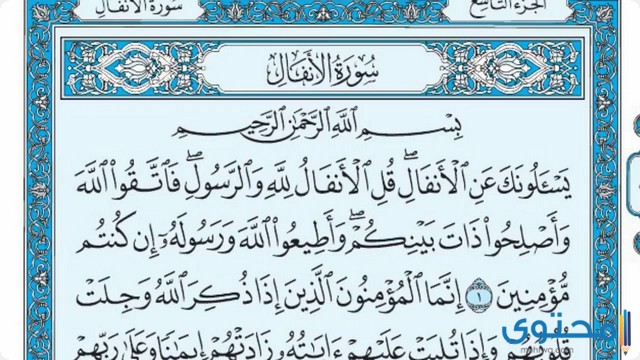 سورة الأنفال
الجزء التاسع
سُورَةُ الأَنفَالِ
بِسْمِ اللَّهِ الرَّحْمَٰنِ الرَّحِيمِ
يَسْـَٔلُونَكَ عَنِ الْأَنفَالِ ۖ قُلِ الْأَنفَالُ لِلَّهِ وَالرَّسُولِ ۖ فَاتَّقُوا اللَّهَ
وَأَصْلِحُوا ذَاتَ بَيْنِكُمْ ۖ وَأَطِيعُوا اللَّهَ وَرَسُولَهُۥ إِن كُنتُم
مُّؤْمِنِينَ ١ إِنَّمَا الْمُؤْمِنُونَ الَّذِينَ إِذَا ذُكِرَ اللَّهُ وَجِلَتْ
قُلُوبُهُمْ وَإِذَا تُلِيَتْ عَلَيْهِمْ ءَايَٰتُهُۥ زَادَتْهُمْ إِيمَٰنًا وَعَلَىٰ رَبِّهِمْ
محتوى